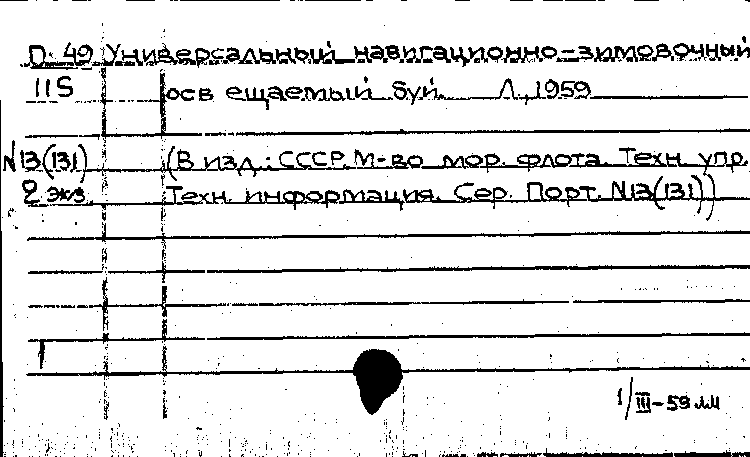 П-49 Универсальный навигационно-зимовочный
115 осв ещаемый буй. Л., 1959
N13(131) (В изд.: СССР. М-во мор. флота. Техн. упр.
2 экз. Техн. информация. Сер. Порт. N13(131))
1
1/III-59 лл